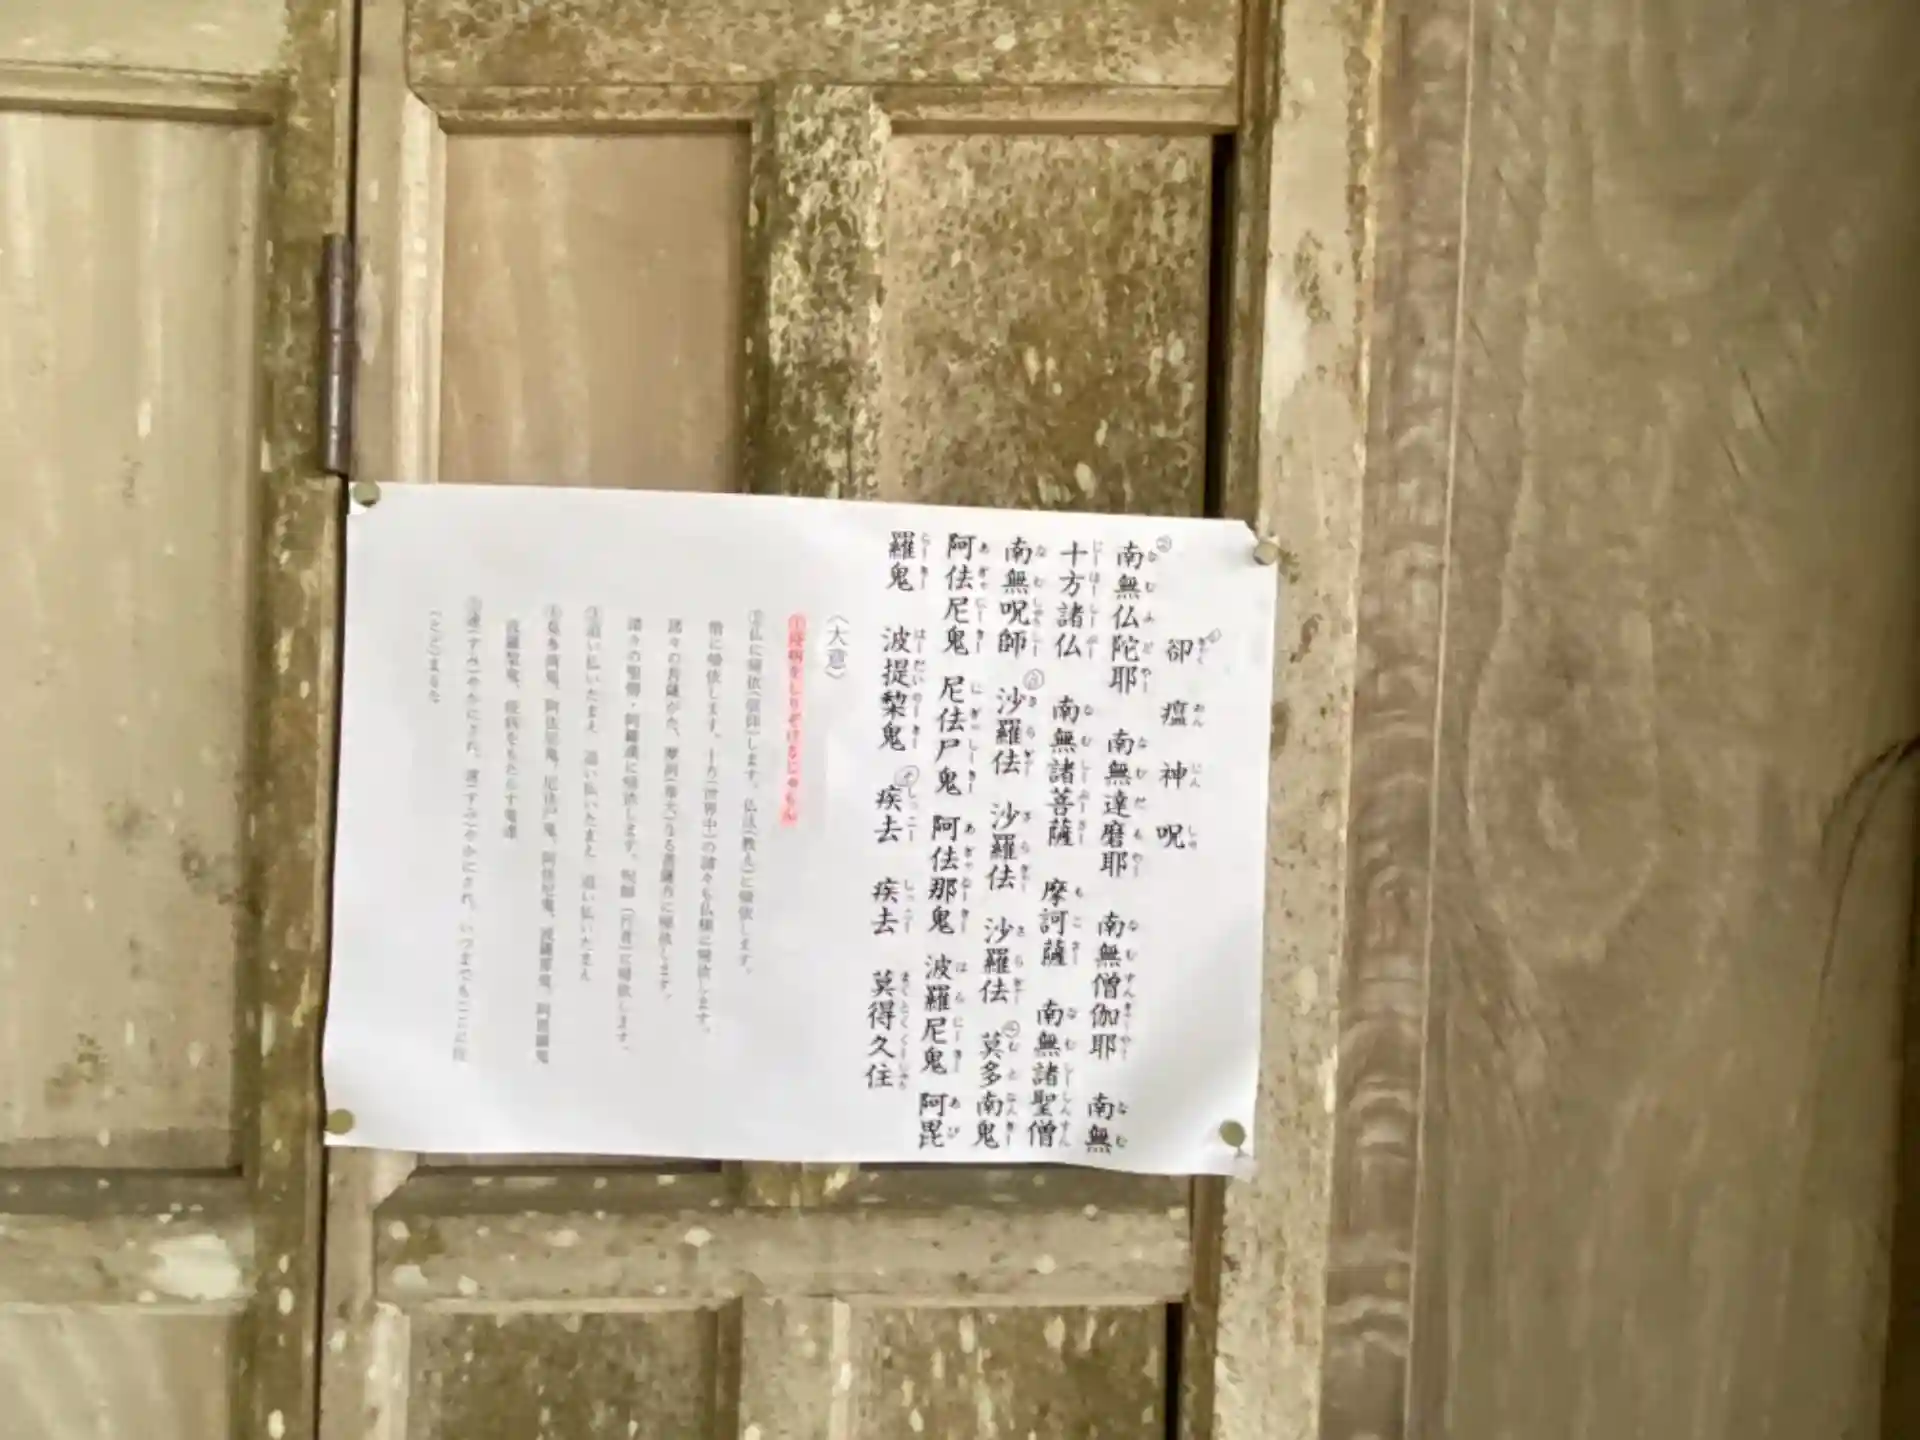 ①卻瘟神呪
②南無仏陀耶 南無達磨耶 南無僧伽耶 南無
十方諸仏 南無諸菩薩 摩訶薩 南無諸聖僧
南無呪師 ③沙羅佉 沙羅佉 沙羅佉 ④莫多南鬼
阿佉尼鬼 尼佉尸鬼 阿佉那鬼 波羅尼鬼 阿毘
羅鬼 波提棃鬼 ⑤疾去 疾去 莫得久住
〈大意〉
①疫病をしりぞけるじゅもん
②仏に帰依(信仰)します。仏法(教え)に帰依します。
僧に帰依します。十方(世界中)の諸々も仏様に帰依します。
諸々の菩薩がた、摩訶(偉大)なる菩薩方に帰依します。
諸々の聖僧・阿羅漢に帰依します。呪師(行者)に帰依します。
③追い払いたまえ 追い払いたまえ 追い払いたまえ
④莫多南鬼、阿佉尼鬼、尼佉尸鬼、阿佉那鬼、波羅尼鬼、阿毘羅鬼
波羅棃鬼、疫病をもたらす鬼達
⑤速(すみ)やかにされ、速(すみ)やかにされ、いつまでもここに
(とど)まるな